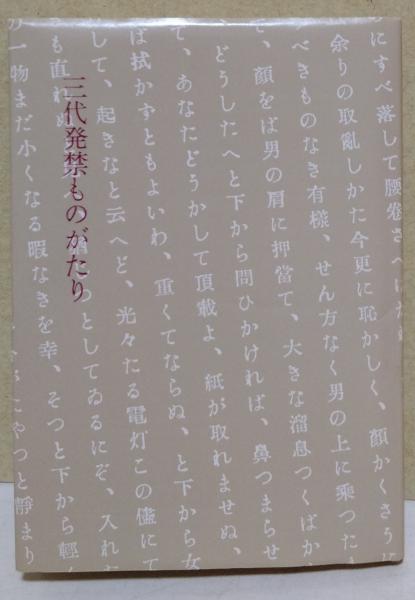 三代発禁ものがたり
にすべ落して腰巻さへ
余りの取亂しかた今更に恥かしく、顔かくさうに
べきものなき有様、せん方なく男の上に乘つた
で、顔をば男の肩に押當て、大きな溜息つくばか
どうしたへと下から問ひかければ、鼻つまらせ
て、あなたどうかして頂戴よ、紙が取れませぬ、
ば拭かずともよいわ、重くてならぬ、と下から女
して、起きなと云へど、光々たる電灯この儘にて
も直れ つとしてゐるにぞ、入れ
一物まだ小くなる暇なきを幸、そつと下から輕
にやつと靜まり